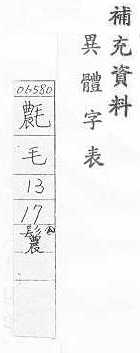 補充資料
異體字表
06580
毛
13
17
鬞